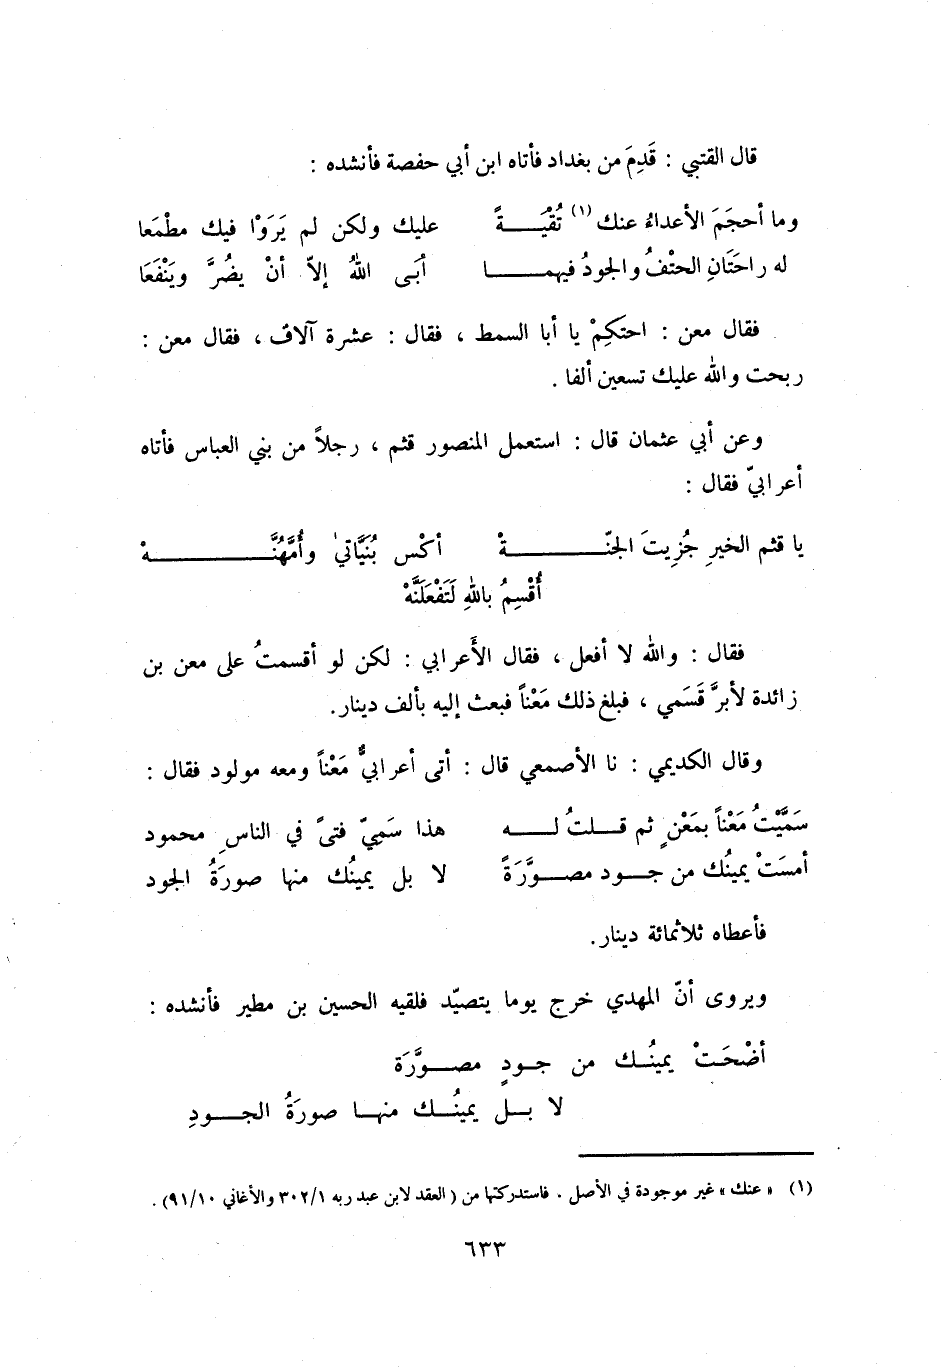 قال القتبي : قَدِمَ من بغداد فأتاه ابن أبي حفصة فأنشده :
وما أحجَمَ الأعداءُ عنك (١) تُقْيَــةً عليك ولكن لم يَرَوْا فيك مطْمَعا
له راحَتَانِ الحتْفُ والجودُ فيهمــا أبَى اللهُ إلاّ أنْ يضُرَّ ويَنْفَعَا
فقال معن : احتكِمْ يا أبا السمط ، فقال : عشرة آلاف ، فقال معن :
ربحت والله عليك تسعين ألفا .
وعن أبي عثمان قال : استعمل المنصور قثم ، رجلاً من بني العباس فأتاه
أعرابيّ فقال :
يا قثم الخيرِ جُزِيتَ الجنّــةْ أكْس بُنَيَّاتي وأُمَّهُنَّــهْ
أُقْسِمُ باللهِ لَتَفْعَلَنَّهْ
فقال : والله لا أفعل ، فقال الأَعرابي : لكن لو أقسمتُ على معن بن
زائدة لأبرَّ قَسَمي ، فبلغ ذلك مَعْناً فبعث إليه بألف دينار.
وقال الكديمي : نا الأصمعي قال : أتى أعرابيٌّ مَعْناً ومعه مولود فقال :
سَمَّيْتُ مَعْناً بمَعْنٍ ثم قــلتُ لــه هذا سَمِيّ فتىً في الناسِ محمود
أمسَتْ يمينُك من جــود مصــوَّرَةً لا بل يمينُك منها صورَةُ الجود
فأعطاه ثلاثمائة دينار.
ويروى أنّ المهدي خرج يوما يتصيّد فلقيه الحسين بن مطير فأنشده :
أضْحَــتْ يمينُــك من جــودٍ مصــوَّرَة
لا بــل يمينُــك منهــا صورَةُ الجــودِ
(١) « عنك » غير موجودة في الأصل . فاستدركتها من ( العقد لابن عبد ربه ٣٠٢/١ والأغاني ٩١/١٠) .
٦٣٣